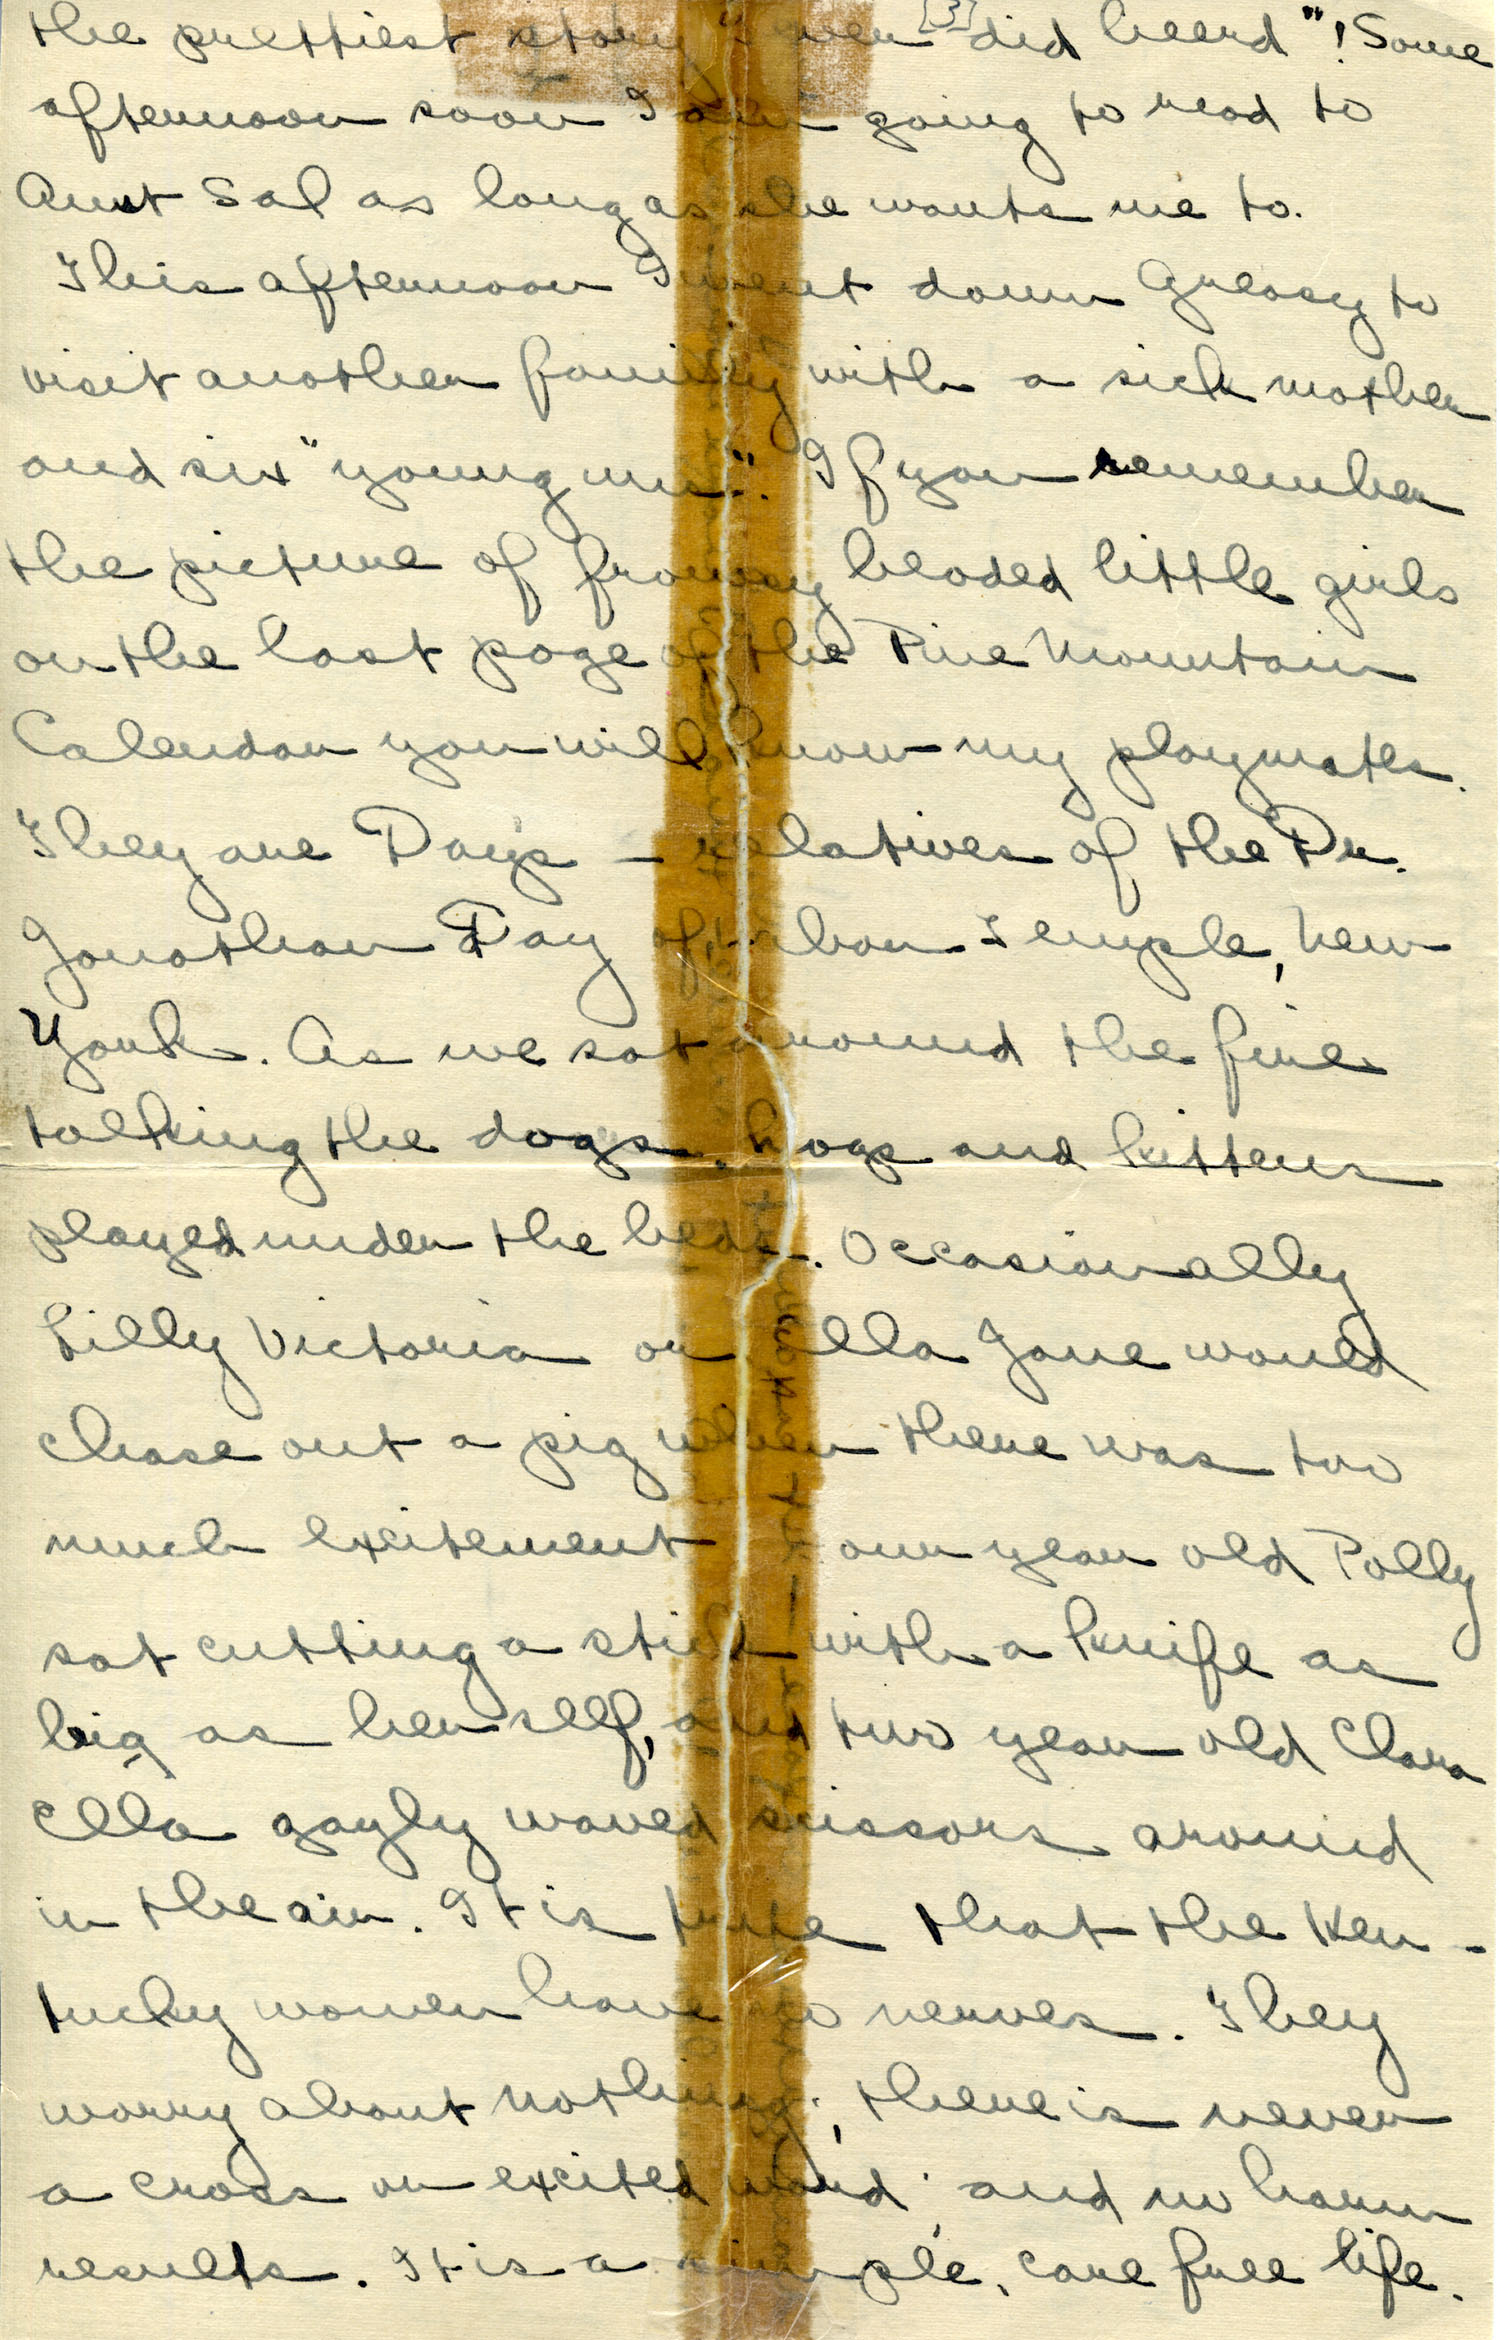 [3]
the prettiest story "ever did heerd"! Some
afternoon soon I am going to read to
Aunt Sal as long as she wants me to.
This afternoon I went down Greasy to
visit another family with a sick mother
and six "young uns". If you remember
the picture of frowsy headed little girls
on the last page of the Pine Mountain
Calendar you will know my playmates.
They are Days – relatives of the Dr.
Jonathan Day of Labor Temple, New
York. As we sat around the fire
talking the dogs, hogs and kittens
played under the beds. Occasionally
Lilly Victoria or Ella Jane would
chase out a pig when there was too
much excitement. Four year old Polly
sat cutting a stick with a knife as
big as herself, and two year old Clara
Ella gayly waved scissors around
in the air. It is true that the Ken-
tucky women have no nerves. They
worry about nothing; there is never
a cross or excited word; and no harm
results. It is a simple, care free life.